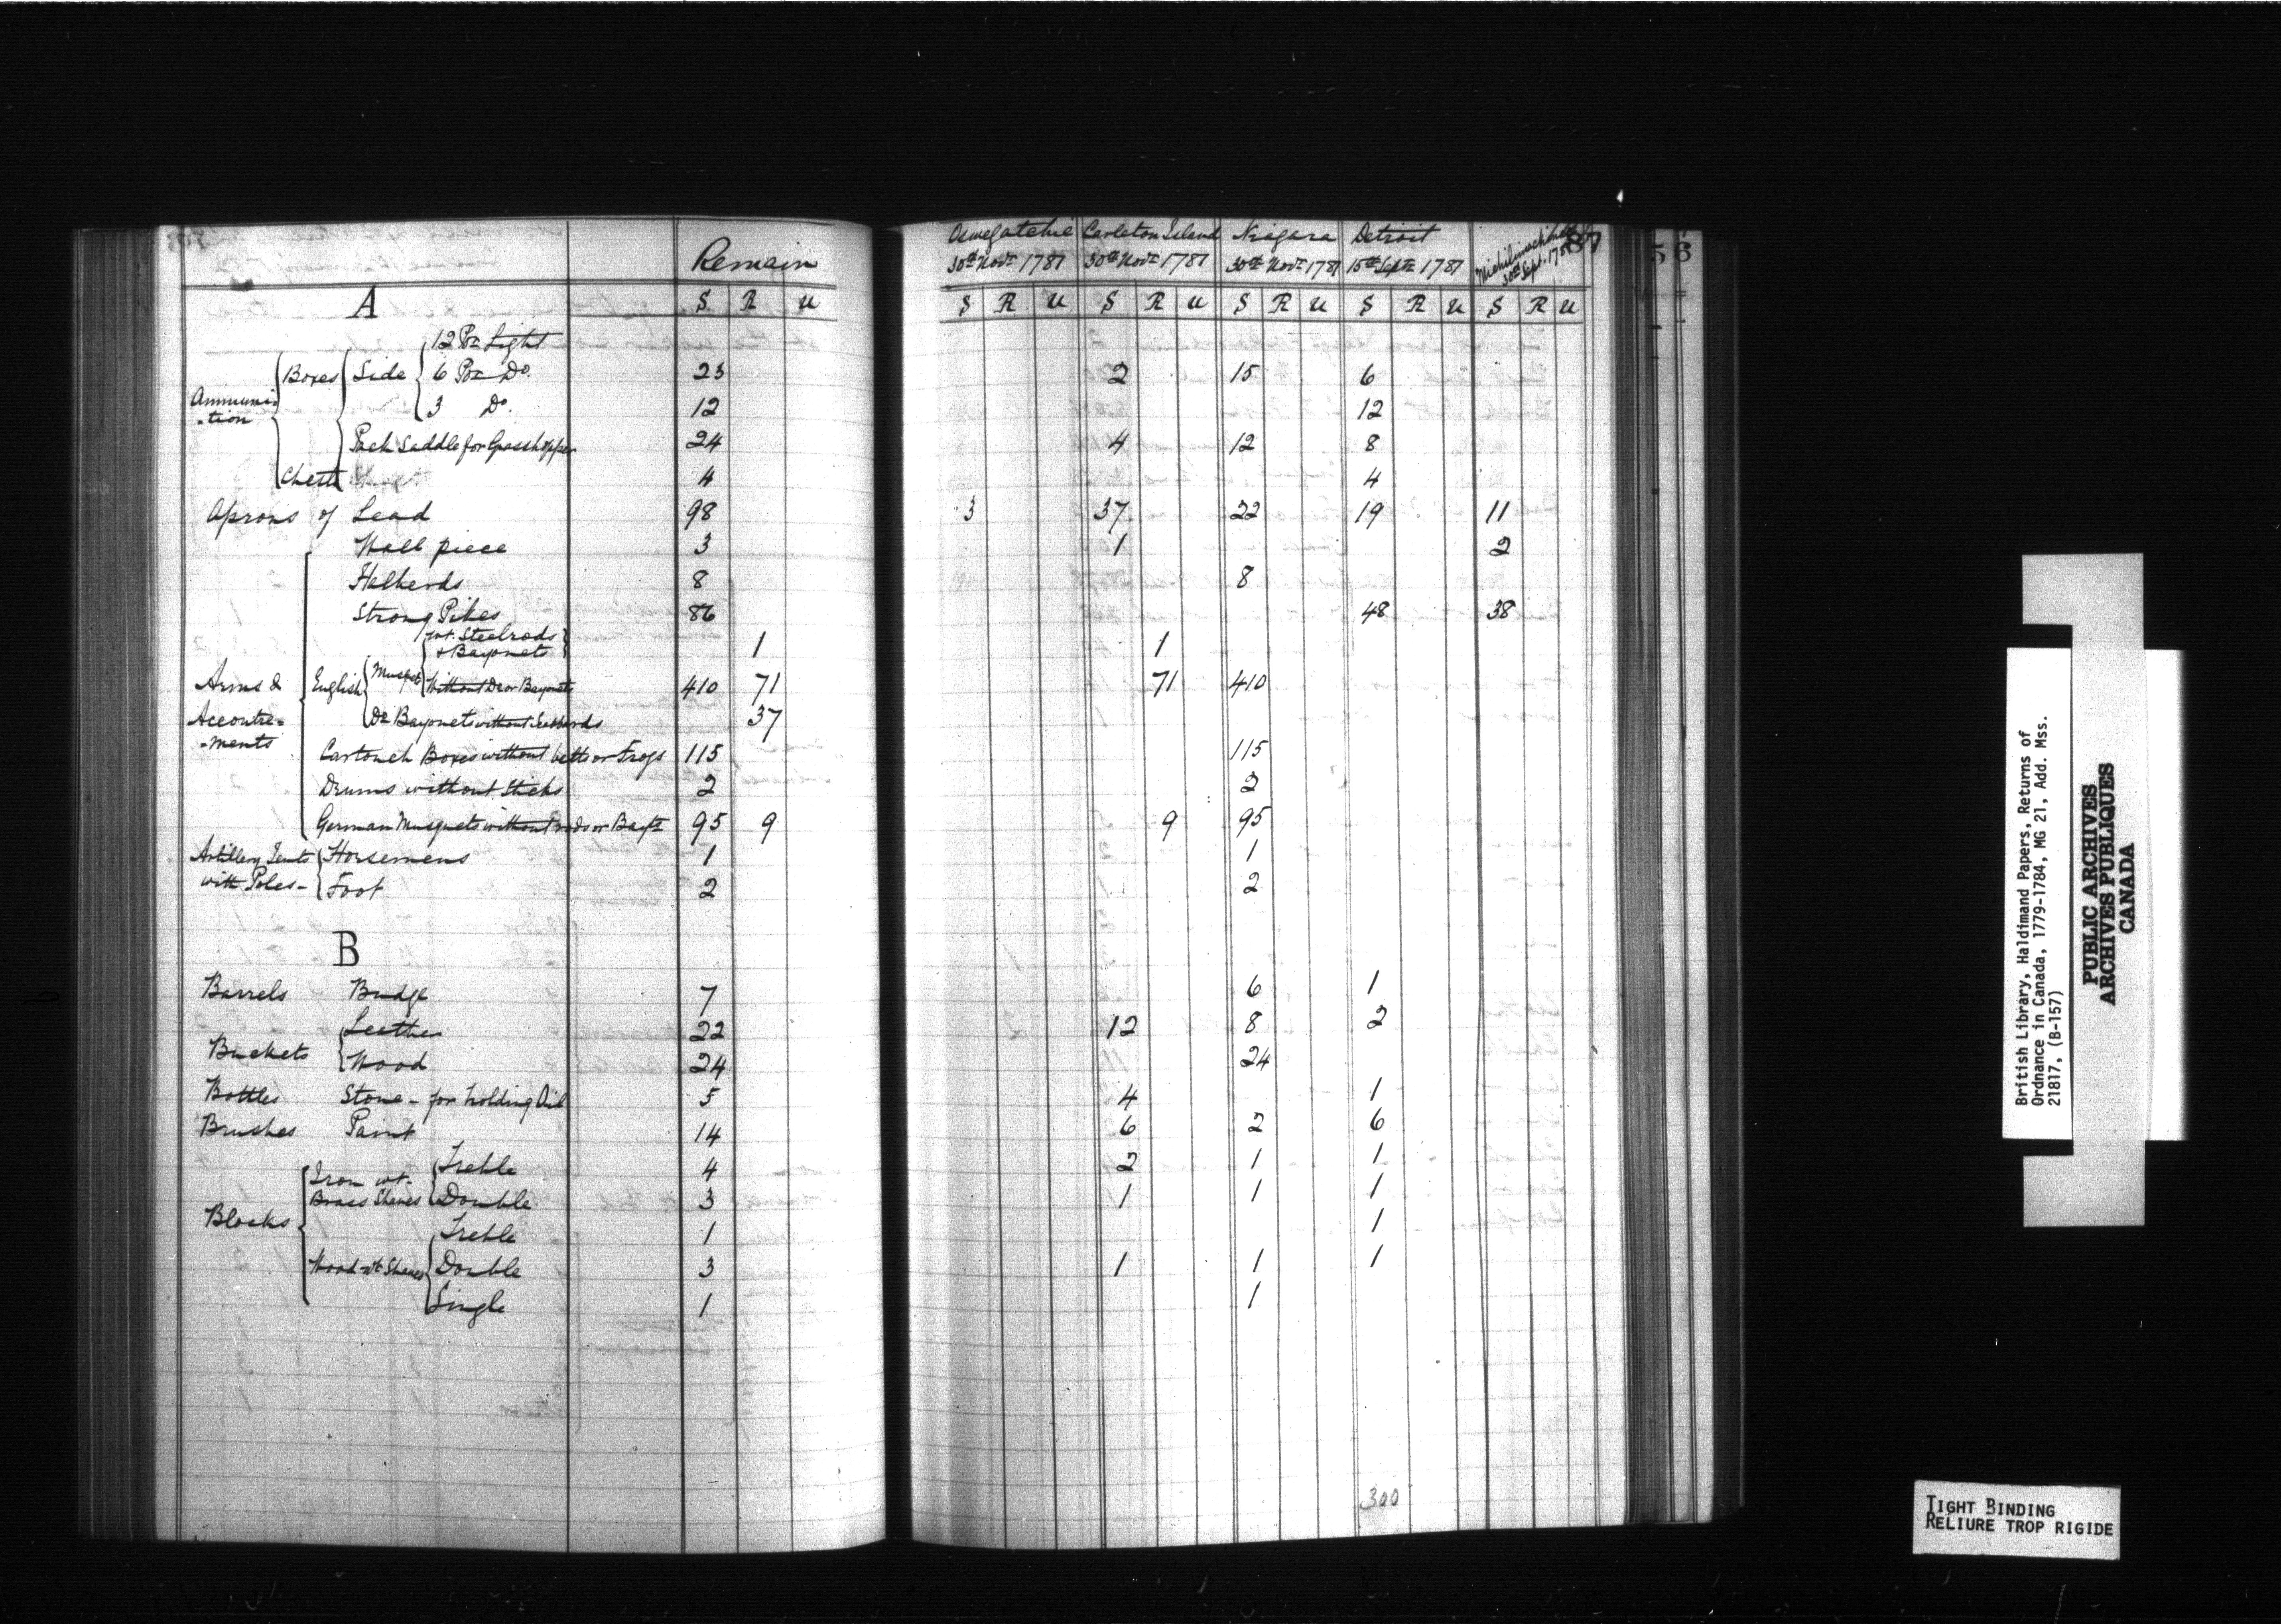 Remain
A S R U
12 Pr Light
Boxes Side 6 Pr Do. 23
Ammuni-
-tion
3 Do. 12
Pack Saddle for Grasshopper 24
Chests 4
Aprons of Lead 98
Wall piece 3
Halberds 8
Strong Pikes 86
wt. Steelrods
& Bayonets 1
Arms & English Musqts Without Do or Bayonets 410 71
Accoutre-
-ments
Do Bayonets without Scabbards 37
Cartouch Boxes without belts or Frogs 115
Drums without Sticks 2
German Musquets without rods or Bayts 95 9
Artillery Tents
with Poles -
Horsemens 1
Foot 2
B
Barrels Budge 7
Buckets
Leather 22
Wood 24
Bottles Stone - for holding Oil 5
Brushes Paint 14
Blocks
Iron wt.
Brass Sheves
Treble 4
Double 3
Treble 1
Wood wt Sheves Double 3
Single 1
Oswegatchie Carleton Island Niagara Detroit Michilimackinac 87
30th Novr 1781 30th Novr 1781 30th Novr 1781 15th Septr 1781 30th Sept. 1781
S R U S R U S R U S R U S R U
2 15 6
12
4 12 8
4
3 37 22 19 11
1 2
8
48 38
1
71 410
115
2
9 95
1
2
6 1
12 8 2
24
4 1
6 2 6
2 1 1
1 1 1
1
1 1 1
1
300
56
British Library, Haldimand Papers, Returns of
Ordnance in Canada, 1779-1784, MG 21, Add. Mss.
21817, (B-157)
PUBLIC ARCHIVES
ARCHIVES PUBLIQUES
CANADA
TIGHT BINDING
RELIURE TROP RIGIDE